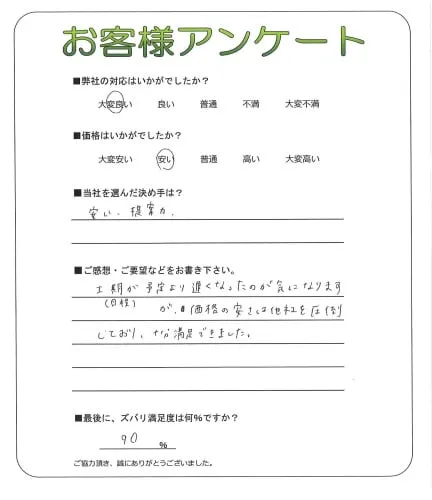 お客様アンケート
■弊社の対応はいかがでしたか？
大変良い 良い 普通 不満 大変不満
■価格はいかがでしたか？
大変安い 安い 普通 高い 大変高い
■当社を選んだ決め手は？
安い、提案力。
■ご感想・ご要望などをお書き下さい。
工期が予定より遅くなったのが気になります
(日程)
が、価格の安さは他社を圧倒
しており、十分満足できました。
■最後に、ズバリ満足度は何％ですか？
90 ％
ご協力頂き、誠にありがとうございました。